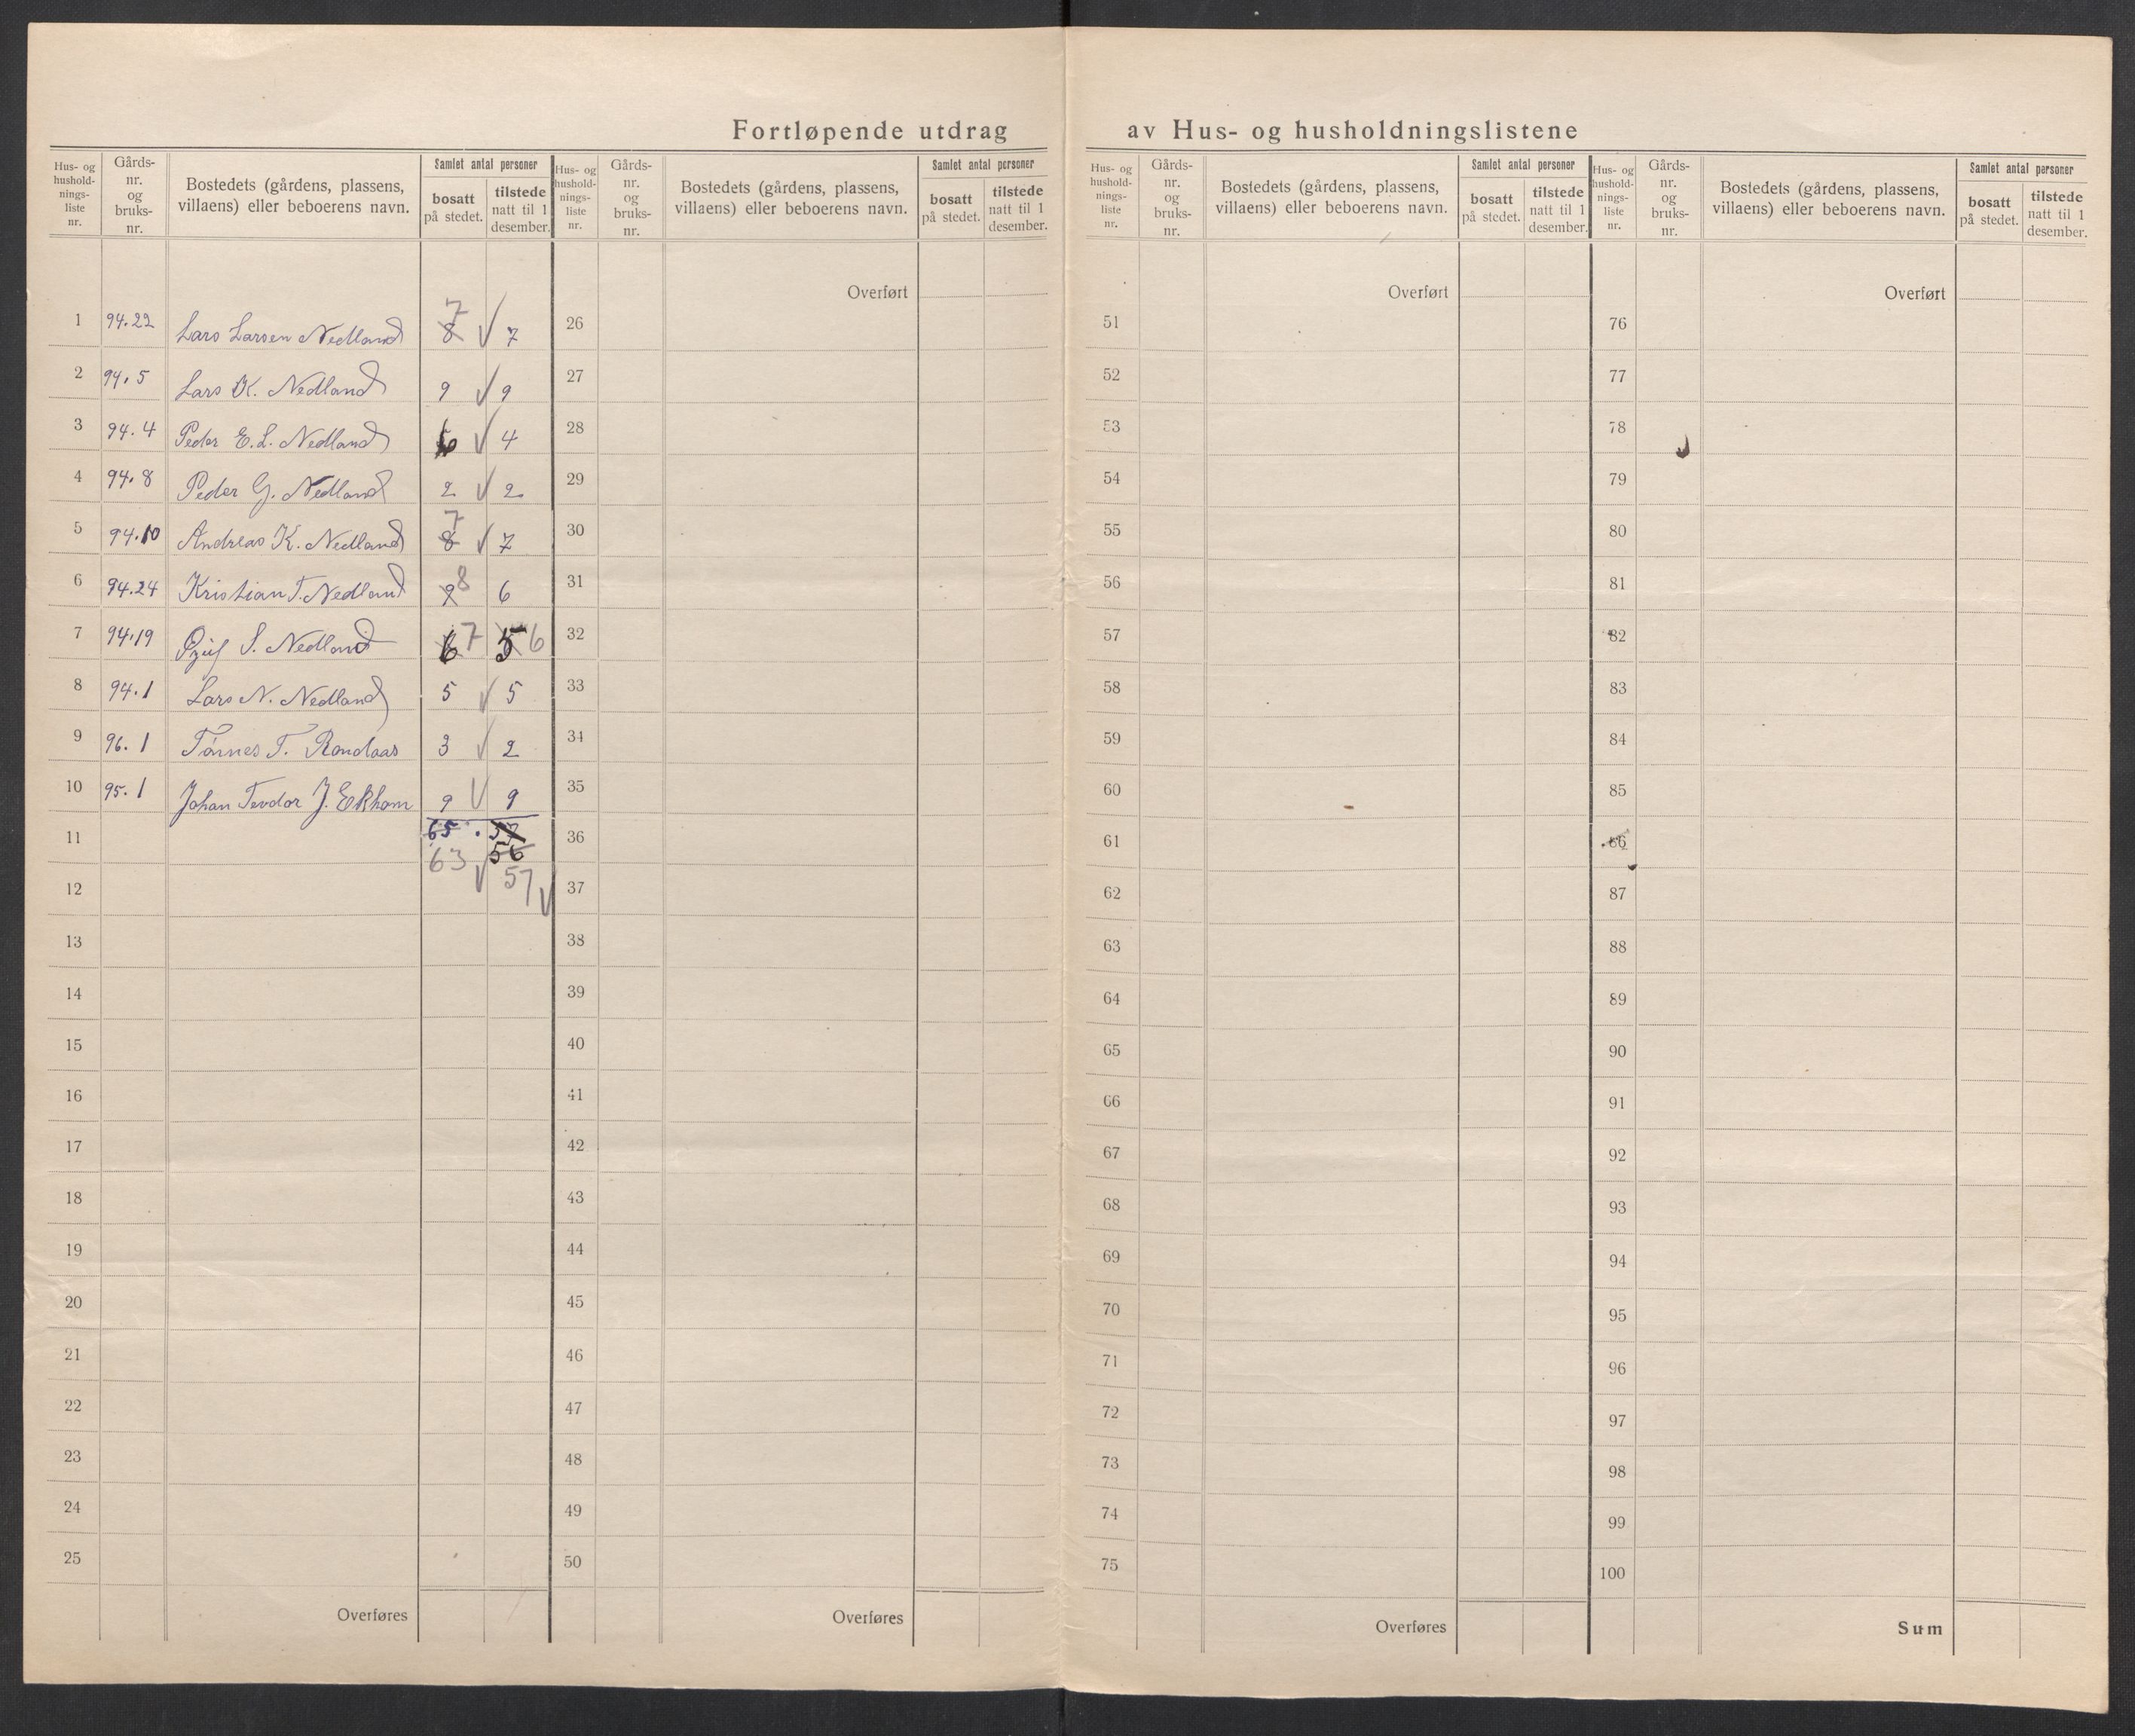 Fortløpende utdrag av Hus- og husholdningslistene
Hus- og hushold-nings-liste nr. Gårds-nr. og bruks-nr. Bostedets (gårdens, plassens, villaens) eller beboerens navn. Samlet antal personer bosatt på stedet. tilstede natt til 1 desember.
Hus- og hushold-nings-liste nr. Gårds-nr. og bruks-nr. Bostedets (gårdens, plassens, villaens) eller beboerens navn. Samlet antal personer bosatt på stedet. tilstede natt til 1 desember.
Hus- og hushold-nings-liste nr. Gårds-nr. og bruks-nr. Bostedets (gårdens, plassens, villaens) eller beboerens navn. Samlet antal personer bosatt på stedet. tilstede natt til 1 desember.
Hus- og hushold-nings-liste nr. Gårds-nr. og bruks-nr. Bostedets (gårdens, plassens, villaens) eller beboerens navn. Samlet antal personer bosatt på stedet. tilstede natt til 1 desember.
1 94.22 Lars Larsen Nedland 8 7 √ 7
2 94.5 Lars K. Nedland 9 √ 9
3 94.4 Peder E.L. Nedland 6 √ 4
4 94.8 Peder G. Nedland 2 √ 2
5 94.10 Andreas K. Nedland 8 7 √ 7
6 94.24 Kristian T. Nedland 9 8 6
7 94.19 S. Nedland 6 7 5 6
8 94.1 Lars N. Nedland 5 √ 5
9 96.1 Tønnes T. Rondlaas 3 √ 2
10 95.1 Johan Teodor J. Ekhom 9 √ 9
11 65 57
63 √ 56
12 57 √
13
14
15
16
17
18
19
20
21
22
23
24
25
Overføres
Overført
26
27
28
29
30
31
32
33
34
35
36
37
38
39
40
41
42
43
44
45
46
47
48
49
50
Overføres
Overført
51
52
53
54
55
56
57
58
59
60
61
62
63
64
65
66
67
68
69
70
71
72
73
74
75
Overføres
Overført
76
77
78
79
80
81
82
83
84
85
86
87
88
89
90
91
92
93
94
95
96
97
98
99
100
Sum